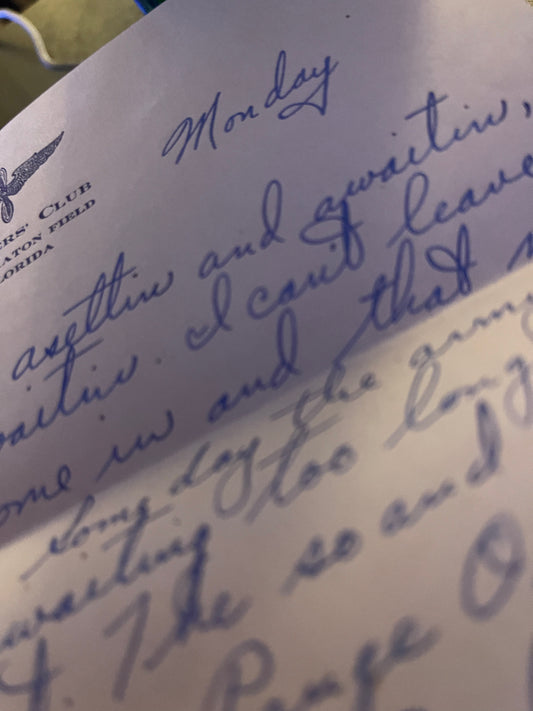 Monday
ERS' CLUB
ATON FIELD
LORIDA
asettin and awaitin,
aitin. I can't leave
ome in and that
Some day the army
waiting too long
t. The so and
Range O